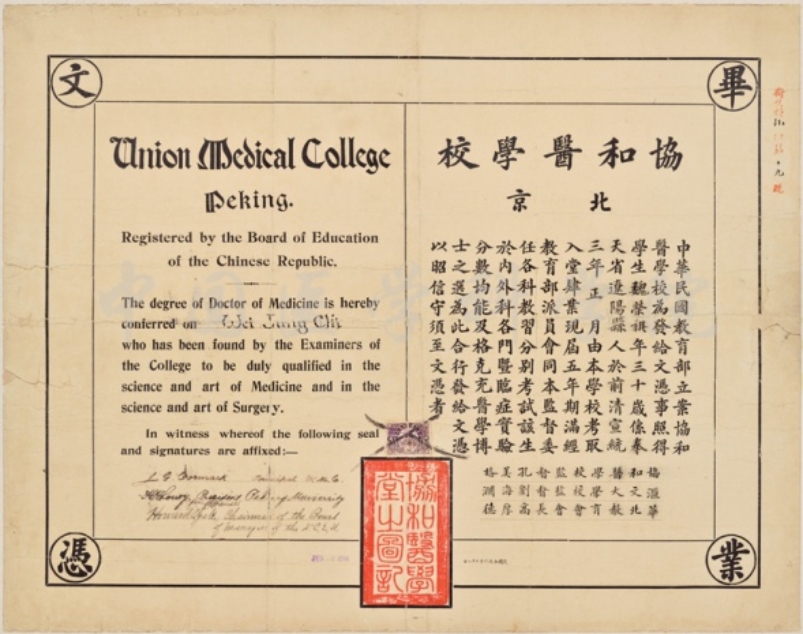 畢業文憑
Union Medical College
Peking.
Registered by the Board of Education
of the Chinese Republic.
The degree of Doctor of Medicine is hereby
conferred on Wei Jung Chi
who has been found by the Examiners of
the College to be duly qualified in the
science and art of Medicine and in the
science and art of Surgery.
In witness whereof the following seal
and signatures are affixed:—
Chairman of the Board
協和醫學校
北京
中華民國教育部立案協和
醫學校為發給文憑事照得
學生魏榮祺年三十歲係奉
天省遼陽縣人於前清宣統
三年正月由本學校考取
入堂肄業現屆五年期滿經
教育部派員會同本監督委
任各科教習分別考試該生
於內外科各門暨臨症實驗
分數均能及格克充醫學博
士之選為此合行發給文憑
以昭信守須至文憑者
協和醫學校監督孔美格
滙文大學校監督劉海瀾
華北教育會會長高厚德
協和醫學
堂之圖記